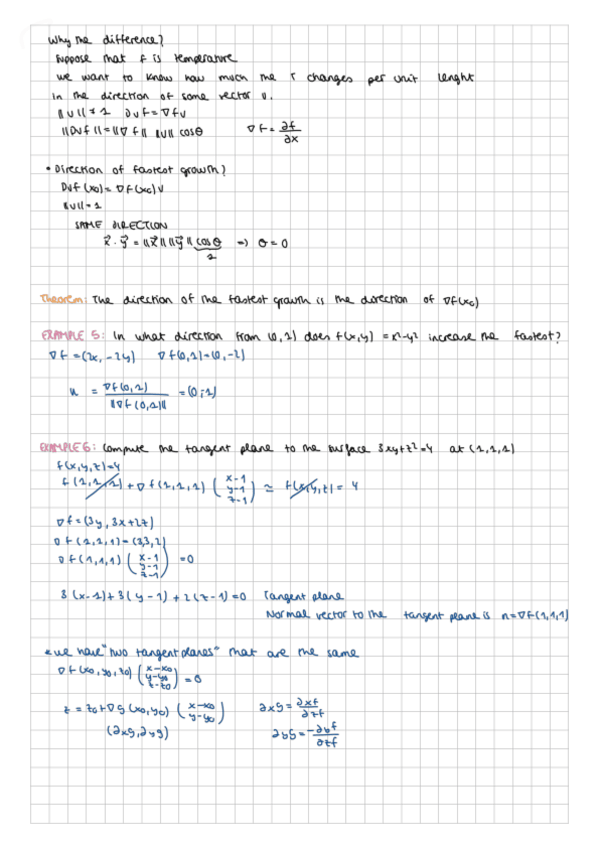 Why the difference?
Suppose that f is temperature
we want to know how much the T changes per unit lenght
in the direction of some vector v.
||v|| = 1 Dvf = ∇fv
||Dvf|| = ||∇f|| ||v|| cosθ ∇f = ∂f/∂x
• Direction of fastest growth?
Dvf(x0) = ∇f(x0)v
||v|| = 1
SAME DIRECTION
x⃗ · y⃗ = ||x⃗|| ||y⃗|| cosθ => θ = 0
1
Theorem: The direction of the fastest growth is the direction of ∇f(x0)
EXAMPLE 5: In what direction from (0,1) does f(x,y) = x²-y² increase the fastest?
∇f = (2x, -2y) ∇f(0,1) = (0,-2)
u = ∇f(0,1) / ||∇f(0,1)|| = (0;1)
EXAMPLE 6: Compute the tangent plane to the surface 3xy+z²=4 at (1,1,1)
f(x,y,z)=4
f(1,1,1) + ∇f(1,1,1) (x-1 y-1 z-1) ≃ f(x,y,z) = 4
∇f = (3y, 3x+2z)
∇f(1,1,1) = (3,3,2)
∇f(1,1,1) (x-1 y-1 z-1) = 0
3(x-1)+3(y-1)+2(z-1)=0 Tangent plane
Normal vector to the tangent plane is n=∇f(1,1,1)
• we have "two tangent planes" that are the same
∇f(x0,y0,z0) (x-x0 y-y0 z-z0) = 0
z = z0+∇g(x0,y0) (x-x0 y-y0) ∂xg = ∂xf/∂zf
(∂xg, ∂yg) ∂yg = -∂yf/∂zf